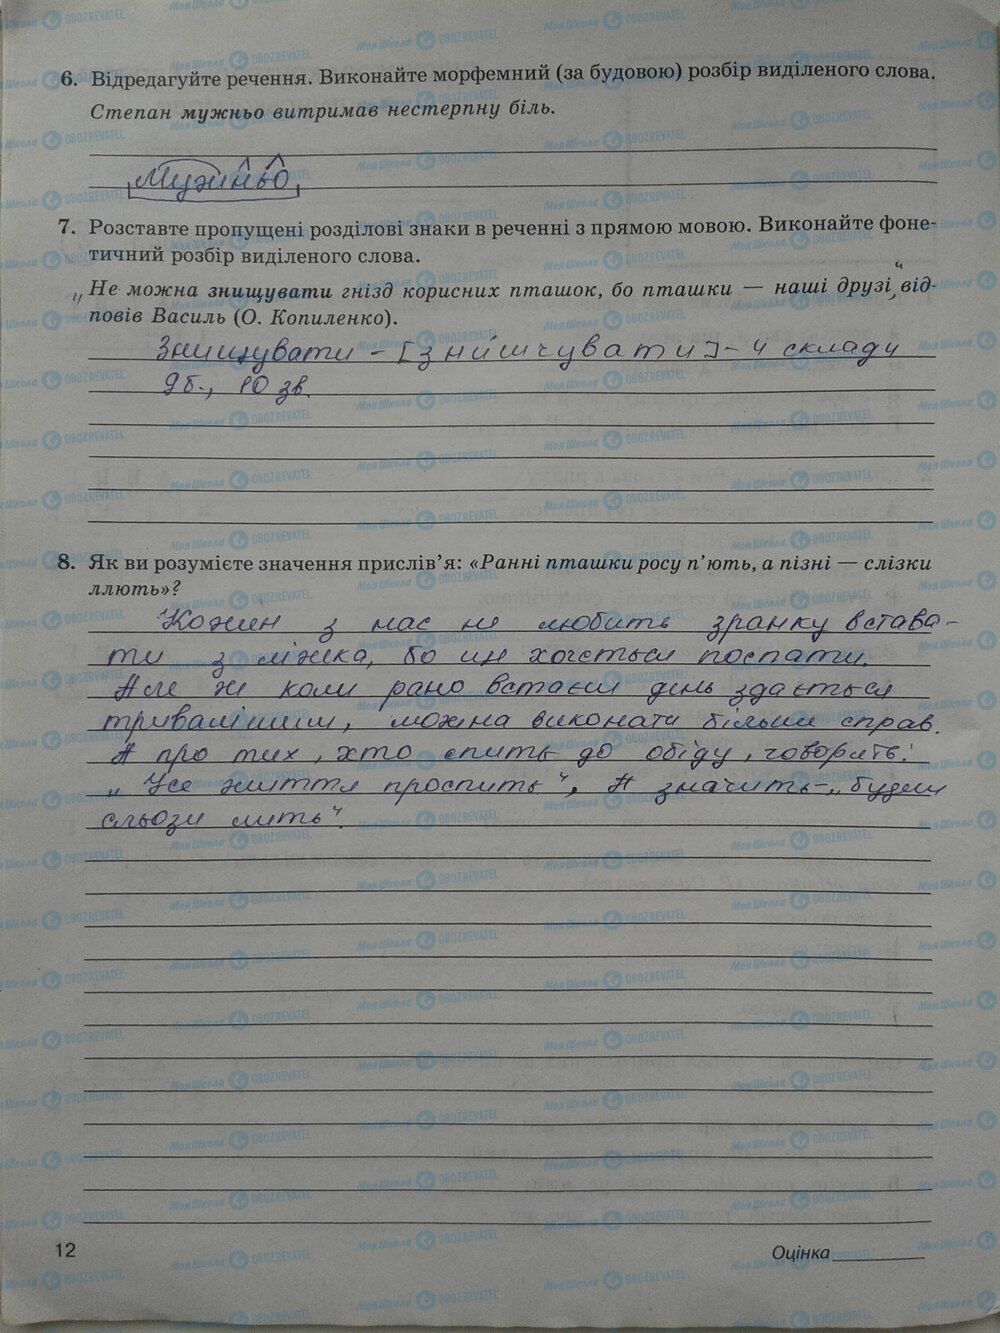 6. Відредагуйте речення. Виконайте морфемний (за будовою) розбір виділеного слова.
Степан мужньо витримав нестерпну біль.
Мужньо
7. Розставте пропущені розділові знаки в реченні з прямою мовою. Виконайте фоне-
тичний розбір виділеного слова.
„Не можна знищувати гнізд корисних пташок, бо пташки — наші друзі“, від-
повів Василь (О. Копиленко).
Знищувати - [знишчувати] - 4 склади
9б., 10 зв.
8. Як ви розумієте значення прислів’я: «Ранні пташки росу п’ють, а пізні — слізки
ллють»?
Кожен з нас не любить зранку встава-
ти з ліжка, бо ще хочеться поспати.
Але ж коли рано встаєш день здається
тривалішим, можна виконати більше справ.
А про тих, хто спить до обіду, говорять:
„Усе життя проспить“, А значить - „буде
сльози лить“.
12
Оцінка
Моя Школа OBOZREVATEL